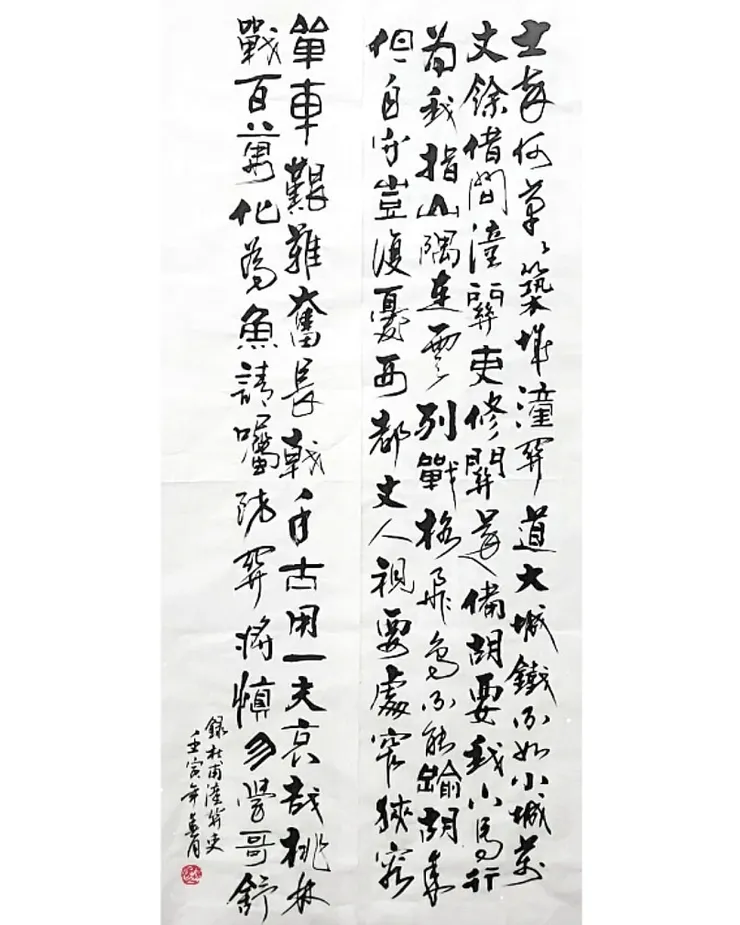 士卒何草〻築城潼關道大城鐵不如小城萬
丈餘借問潼關吏修關還備胡要我下馬行
為我指山隅連雲列戰格飛鳥不能踰胡來
但自守豈復憂西都丈人視要處窄狹容
單車艱難奮長戟千古用一夫哀哉桃林
戰百萬化為魚請囑防關將慎勿學哥舒
錄杜甫潼關吏
壬寅年月